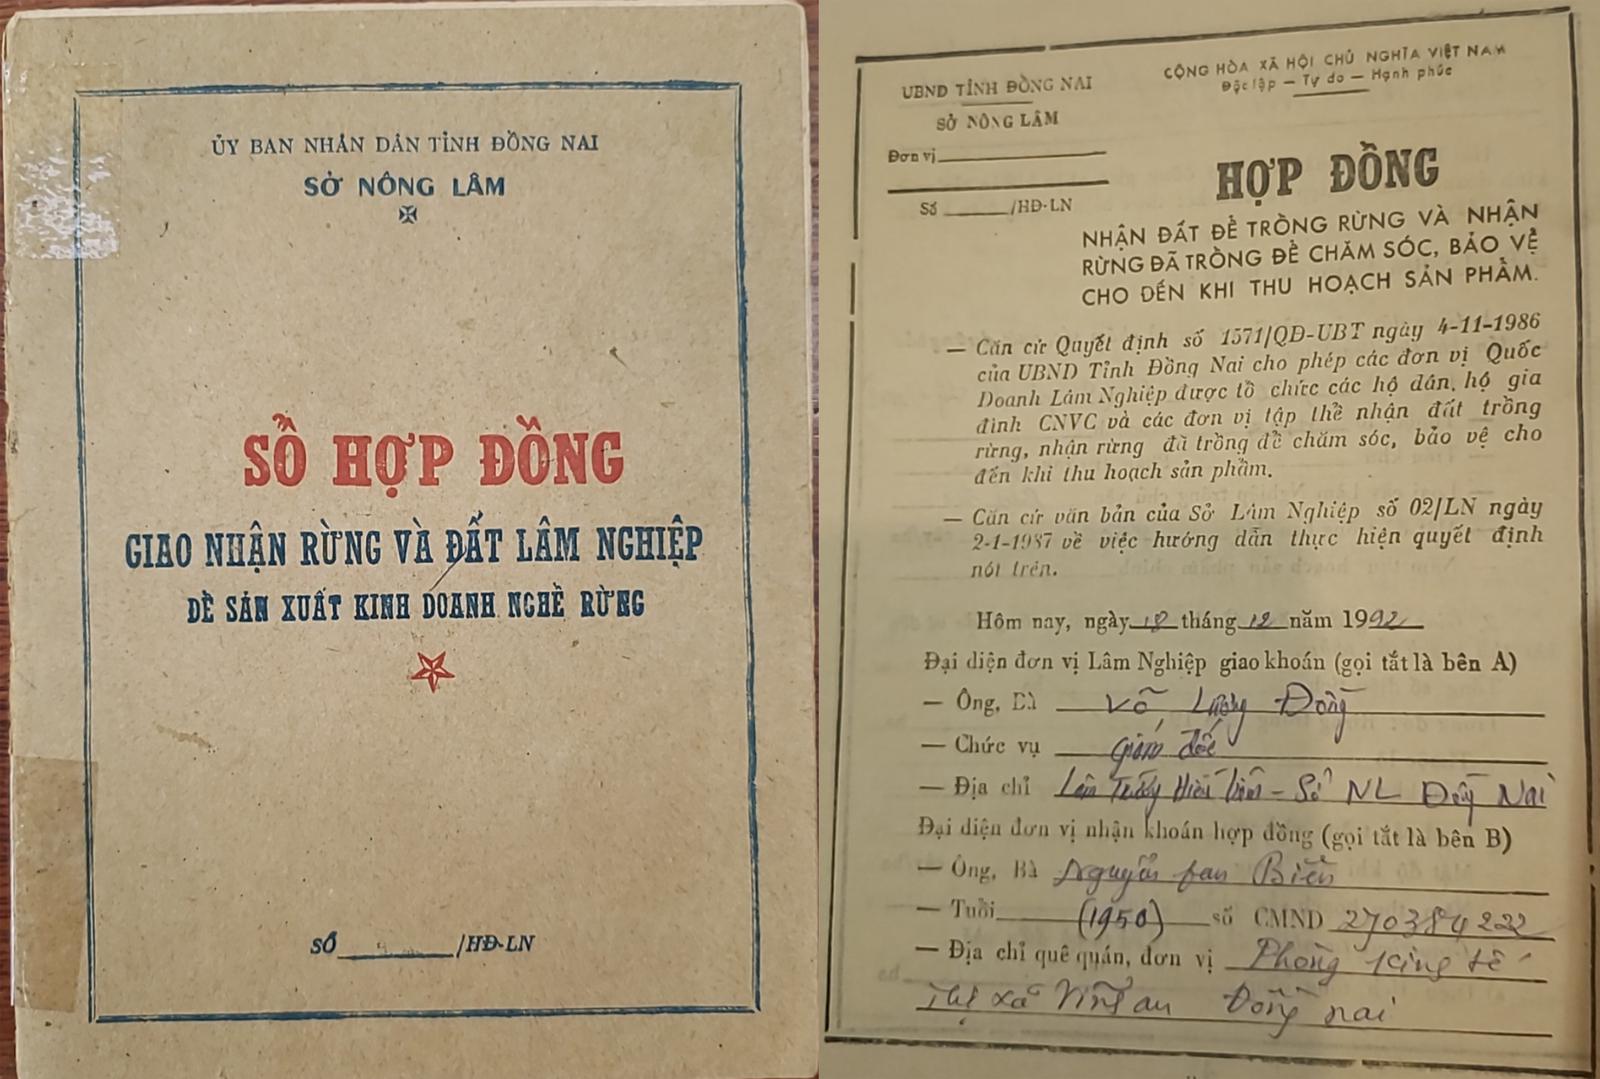 ỦY BAN NHÂN DÂN TỈNH ĐỒNG NAI
SỞ NÔNG LÂM
SỔ HỢP ĐỒNG
GIAO NHẬN RỪNG VÀ ĐẤT LÂM NGHIỆP
ĐỂ SẢN XUẤT KINH DOANH NGHỀ RỪNG
SỐ /HĐ-LN
UBND TỈNH ĐỒNG NAI
SỞ NÔNG LÂM
Đơn vị
Số /HĐ-LN
CỘNG HÒA XÃ HỘI CHỦ NGHĨA VIỆT NAM
Độc lập — Tự do — Hạnh phúc
HỢP ĐỒNG
NHẬN ĐẤT ĐỂ TRỒNG RỪNG VÀ NHẬN
RỪNG ĐÃ TRỒNG ĐỂ CHĂM SÓC, BẢO VỆ
CHO ĐẾN KHI THU HOẠCH SẢN PHẨM.
— Căn cứ Quyết định số 1571/QĐ-UBT ngày 4-11-1986
của UBND Tỉnh Đồng Nai cho phép các đơn vị Quốc
Doanh Lâm Nghiệp được tổ chức các hộ dân, hộ gia
đình CNVC và các đơn vị tập thể nhận đất trồng
rừng, nhận rừng đã trồng để chăm sóc, bảo vệ cho
đến khi thu hoạch sản phẩm.
— Căn cứ văn bản của Sở Lâm Nghiệp số 02/LN ngày
2-1-1987 về việc hướng dẫn thực hiện quyết định
nói trên.
Hôm nay, ngày 18 tháng 12 năm 1992
Đại diện đơn vị Lâm Nghiệp giao khoán (gọi tắt là bên A)
— Ông, Bà Võ Lương Đồng
— Chức vụ Giám đốc
— Địa chỉ Lâm Trường Hiếu Liêm - Sở NL Đồng Nai
Đại diện đơn vị nhận khoán hợp đồng (gọi tắt là bên B)
— Ông, Bà Nguyễn Biên
— Tuổi (1950) số CMND 270384222
— Địa chỉ quê quán, đơn vị Phòng Kinh tế
Thị xã Vĩnh an Đồng nai